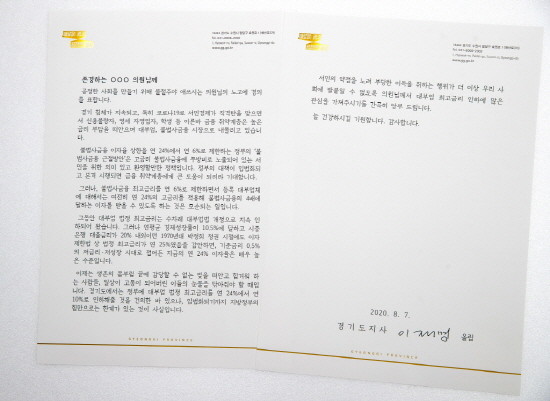 존경하는 ○○○ 의원님께
공정한 사회를 만들기 위해 불철주야 애쓰시는 의원님의 노고에 경의
를 표합니다.
경기 침체가 지속되고, 특히 코로나19로 서민경제가 직격탄을 맞으면
서 신용불량자, 영세 자영업자, 학생 등 이른바 금융 취약계층은 높은
금리 부담을 떠안으며 대부업, 불법사금융 시장으로 내몰리고 있습니
다.
불법사금융 이자율 상한을 연 24%에서 연 6%로 제한하는 정부의 '불
법사금융 근절방안'은 고금리 불법사금융에 무방비로 노출되어 있는 서
민을 위한 의미 있고 환영할만한 정책입니다. 정부의 대책이 입법화되
고 본격 시행되면 금융 취약계층에게 큰 도움이 되리라 기대합니다.
그러나, 불법사금융 최고금리를 연 6%로 제한하면서 등록 대부업체
에 대해서는 여전히 연 24%의 고금리를 적용해 불법사금융의 4배에
달하는 이자를 받을 수 있도록 하는 것은 모순되는 일입니다.
그동안 대부업 법정 최고금리는 수차례 대부업법 개정으로 지속 인
하되어 왔습니다. 그러나 연평균 경제성장률이 10.5%에 달하고 시중
은행 대출금리가 20% 내외이던 1970년대 박정희 정권 시절에도 이자
제한법 상 법정 최고금리가 연 25%였음을 감안하면, 기준금리 0.5%
의 저금리·저성장 시대로 접어든 지금의 연 24% 이자율은 매우 높
은 수준입니다.
이제는 생존의 몸부림 끝에 감당할 수 없는 빚을 떠안고 힘겨워 하
는 사람들, 일상이 고통이 되어버린 이들의 눈물을 닦아줘야 할 때입
니다. 경기도에서는 정부에 대부업 법정 최고금리를 연 24%에서 연
10%로 인하해줄 것을 건의한 바 있으나, 입법화되기까지 지방정부의
힘만으로는 한계가 있는 것이 사실입니다.
GYEONGGI PROVINCE
서민의 약점을 노려 부당한 이득을 취하는 행위가 더 이상 우리 사
회에 발붙일 수 없도록 의원님께서 대부업 최고금리 인하에 많은
관심을 가져주시기를 간곡히 당부 드립니다.
늘 건강하시길 기원합니다. 감사합니다.
2020. 8. 7.
경기도지사 이재명 올림
GYEONGGI PROVINCE